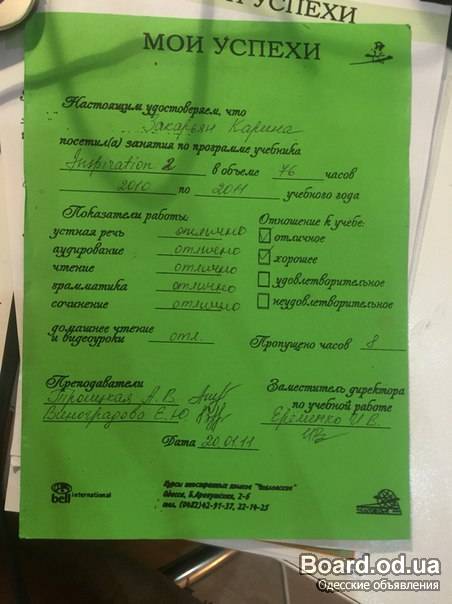 И УСПЕХИ
МОИ УСПЕХИ
Настоящим удостоверяем, что
Закарьян Карина
посетил(а) занятия по программе учебника
Inspiration 2 в объеме 76 часов
2010 по 2011 учебного года
Показатели работы:
устная речь отлично
аудирование отлично
чтение отлично
грамматика отлично
сочинение отлично
домашнее чтение
и видеоуроки отл.
Отношение к учебе:
отличное
хорошее
удовлетворительное
неудовлетворительное
Пропущено часов 8
Преподаватели
Троицкая А.В.
Виноградова Е.Ю
Заместитель директора
по учебной работе
Еременко И В.
Дата 20.01.11
bell international
Курсы иностранных языков
Одесса, 2-б
тел. (0482)42-91-37, 22-14-25
Board.od.ua
Одесские объявления